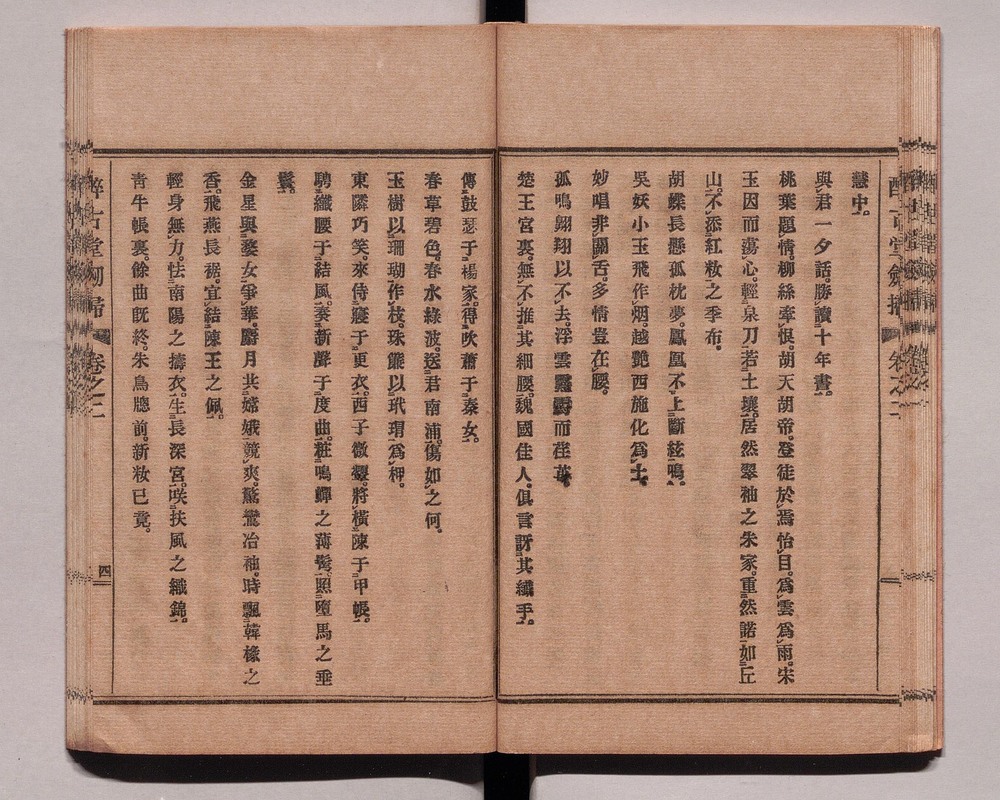 慧中。
與君一夕話。勝讀十年書。
桃葉題情。柳絲牽恨。胡天胡帝。登徒於焉怡目。爲雲爲雨。宋
玉因而蕩心。輕泉刀若土壤。居然翠袖之朱家。重然諾如丘
山。不添紅粧之季布。
胡蝶長懸孤枕夢。鳳凰不上斷絃鳴。
吳妖小玉飛作烟。越艶西施化爲土。
妙唱非關舌。多情豈在腰。
孤鳴翱翔以不去。浮雲黯䨴而荏苒。
楚王宮裏。無不推其細腰。魏國佳人。俱言訝其纖手。
傳鼓瑟于楊家。得吹蕭于秦女。
春草碧色。春水綠波。送君南浦。傷如之何。
玉樹以珊瑚作枝。珠簾以玳瑁爲柙。
東隣巧笑。來侍寢于更衣。西子微顰。將橫陳于甲帳。
騁纖腰于結風。奏新聲于度曲。粧鳴蟬之薄鬢。照墮馬之垂
鬟。
金星與婺女爭華。麝月共嫦娥競爽。驚鸞冶袖。時飄韓椽之
香。飛燕長裾。宜結陳王之佩。
輕身無力。怯南陽之擣衣。生長深宮。咲扶風之織錦。
靑牛帳裏。餘曲旣終。朱鳥牎前。新妝已竟。
醉古堂劒掃 卷之二
四